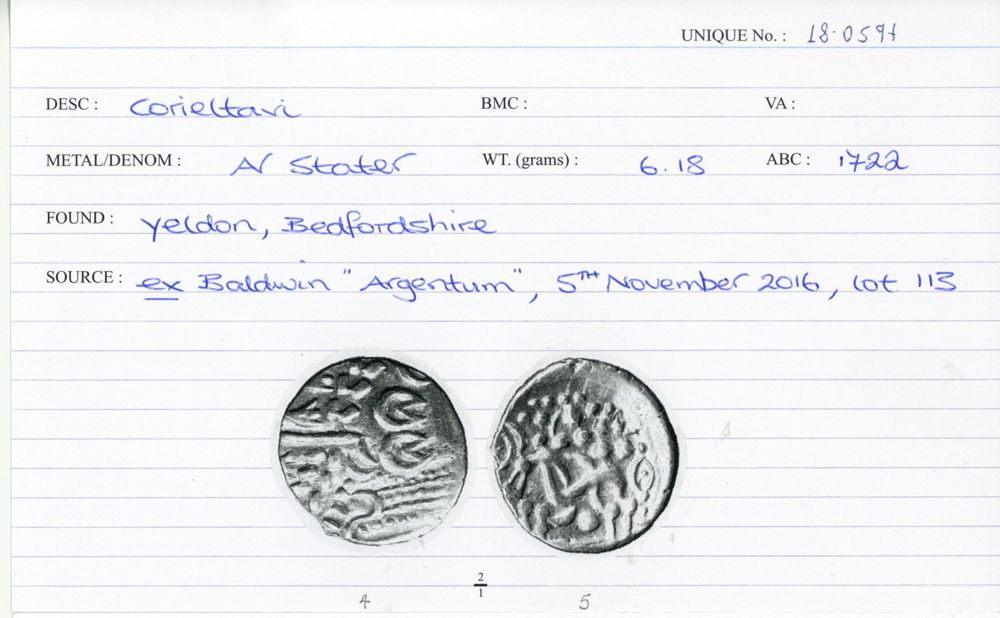 UNIQUE No. : 18.0594
DESC : Corieltavi BMC : VA :
METAL/DENOM : AV Stater WT. (grams) : 6.18 ABC : 1722
FOUND : Yeldon, Bedfordshire
SOURCE : ex Baldwin "Argentum", 5TH November 2016, lot 113
2
1
4 5